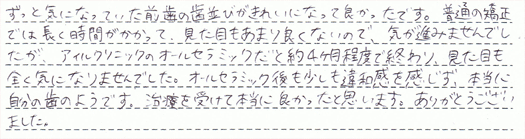 ずっと気になっていた前歯の歯並びがきれいになって良かったです。普通の矯正
では長く時間がかかって、見た目もあまり良くないので、気が進みませんでし
たが、アイルクリニックのオールセラミックだと約4ヶ月程度で終わり、見た目も
全く気になりませんでした。オールセラミック後も少しも違和感を感じず、本当に
自分の歯のようです。治療を受けて本当に良かったと思います。ありがとうござい
ました。